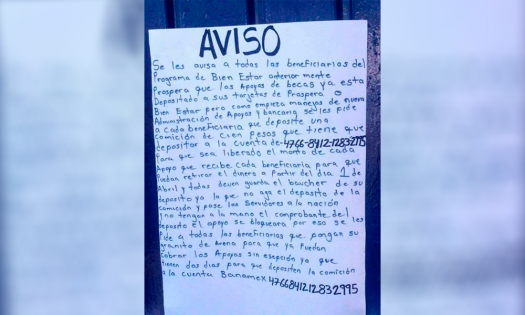 AVISO
Se les avisa a todas las beneficiarias del
Programa de Bien Estar anterior mente
Prospera que los Apoyos de becas ya esta
Depositado a sus tarjetas de Prospera o
Bien Estar pero como empieza manejos de nueva
Administración de Apoyos y bancaria se les pide
a cada beneficiaria que deposite una
Comisión de Cien pesos que tiene que
depositar a la cuenta de 4766-8412-12832995
Para que sea liberado el monto de cada
Apoyo que recibe cada beneficiaria para que
Puedan retirar el dinero a Partir del dia 1 de
Abril y todas deven guarda el baucher de su
deposito ya lo que no aga el deposito de la
comisión y pase los Servidores a la nación
y no tengan a la mano el comprobante del
deposito el apoyo se bloqueara por eso se les
Pide a todas las beneficiarias que pongan su
granito de Arena para que ya Puedan
Cobrar los Apoyos sin esepción ya que
tienen dos dias para que depositen la comisión
a la cuenta Banamex 4766841212832995